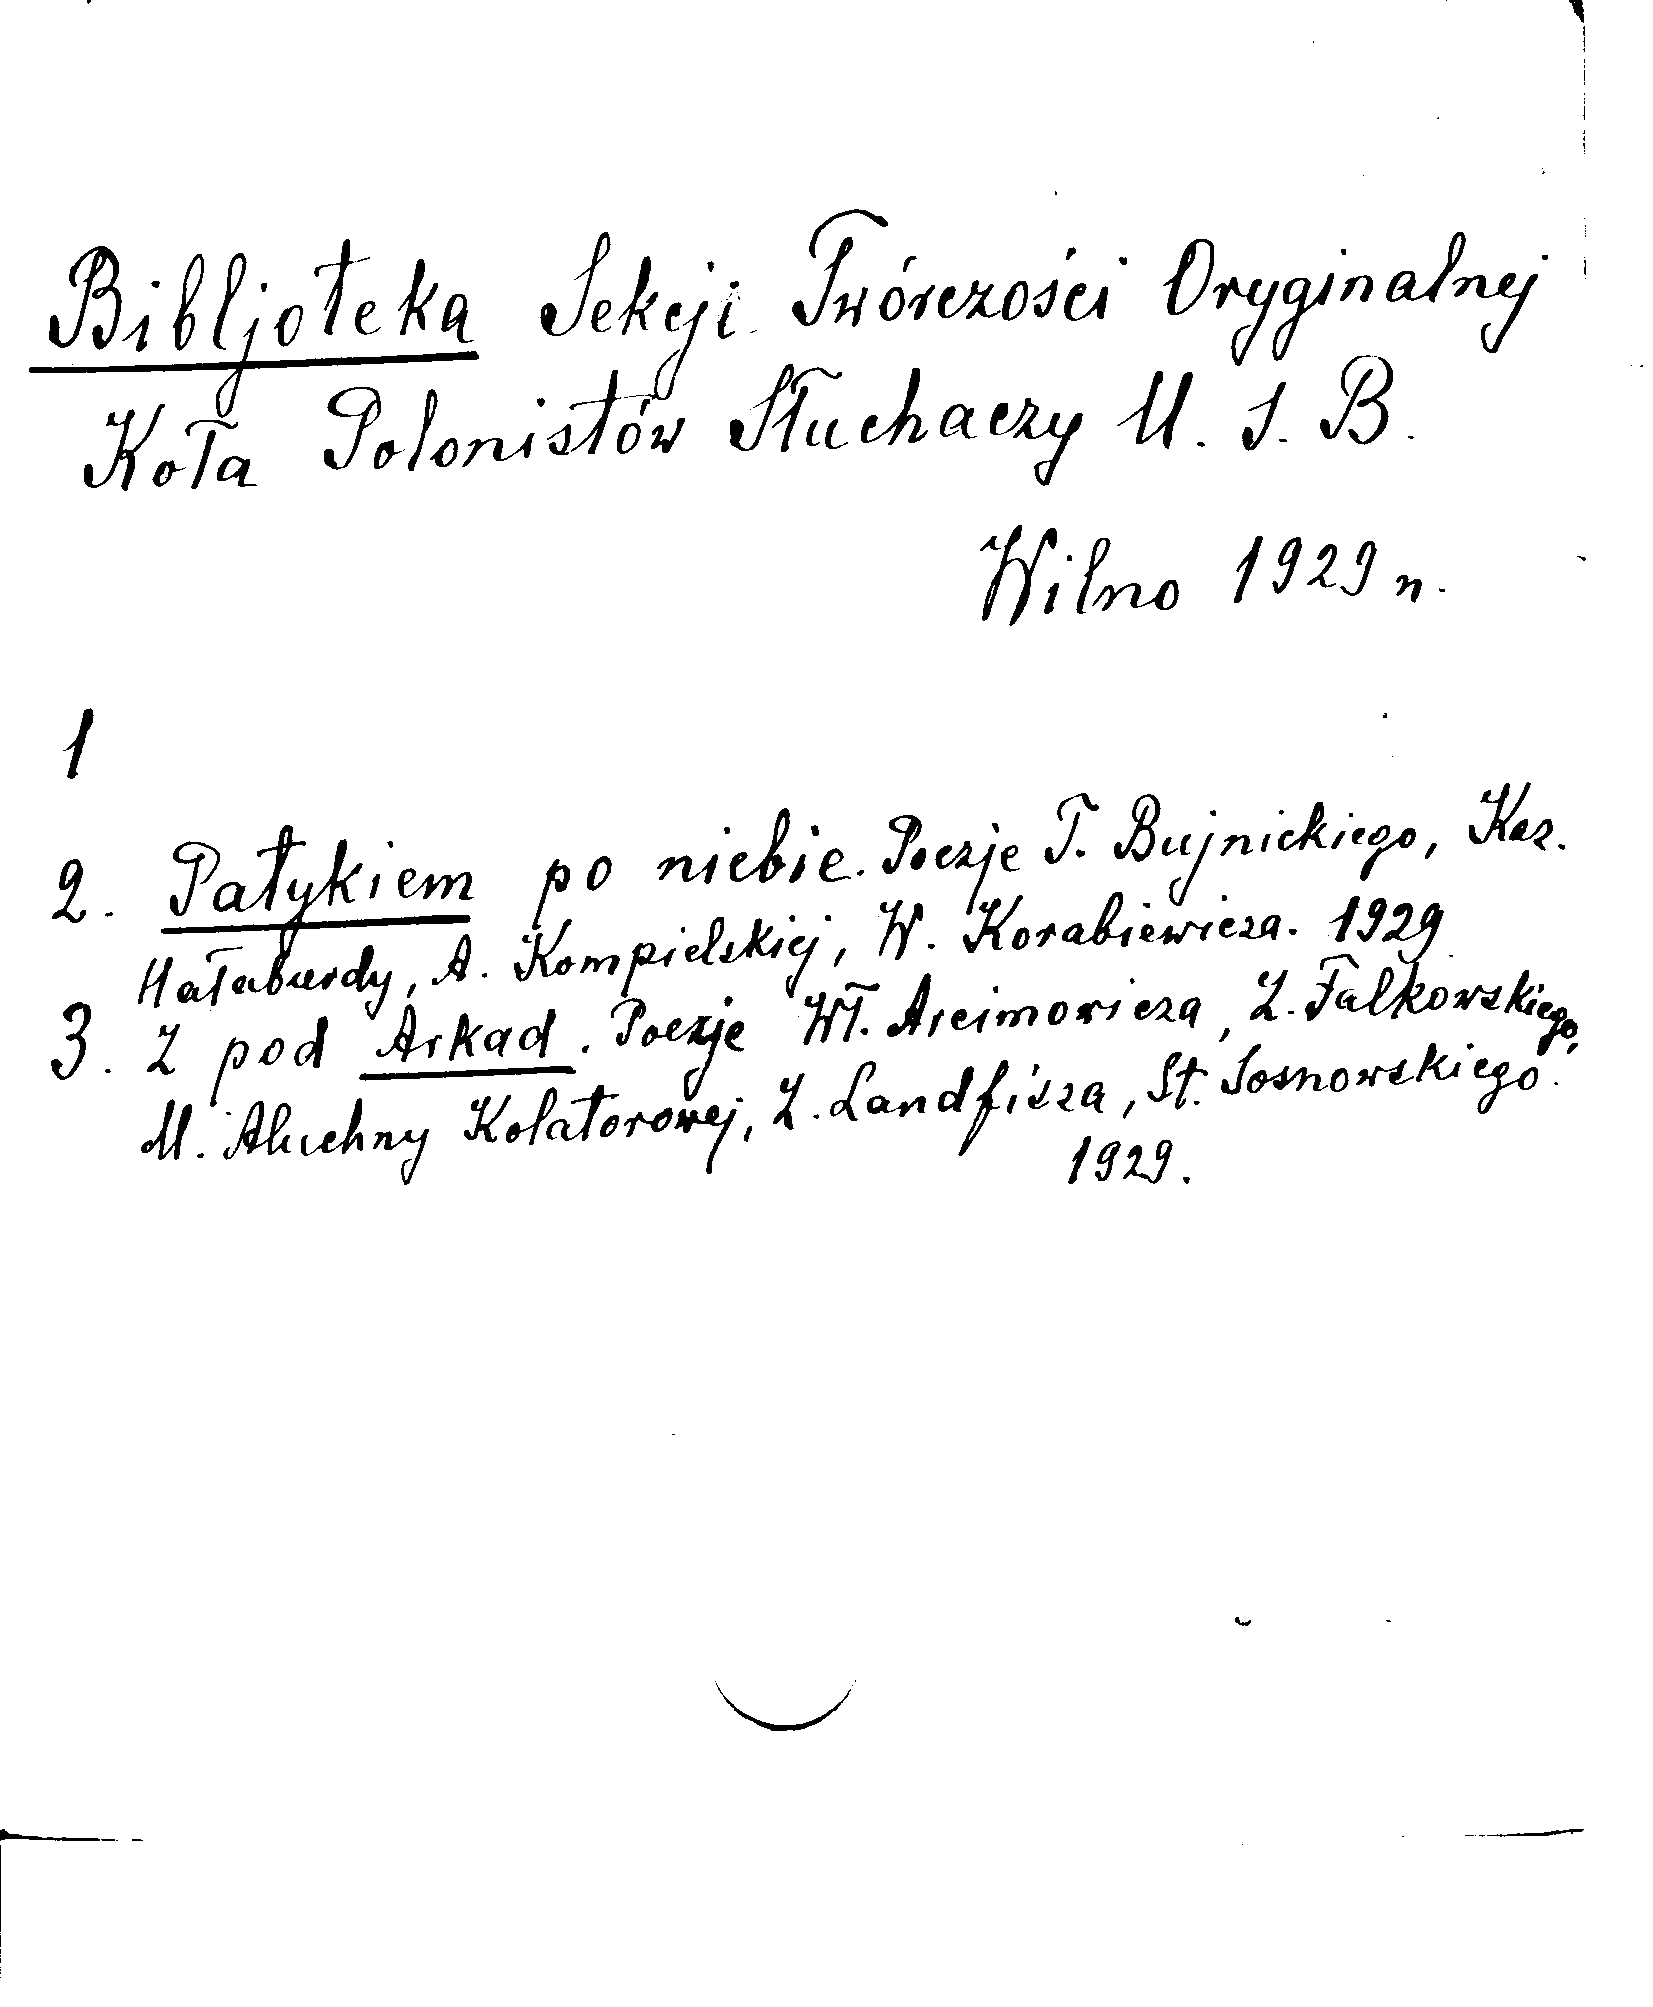 Bibljoteka Sekcji Twórczości Oryginalnej
Koła Polonistów Słuchaczy U. S. B.
Wilno 1929 r.
1
2. Patykiem po niebie. Poezje T. Bujnickiego, Kaz.
Hałaburdy, A. Kompielskiej, W. Korabiewicza. 1929
3. Z pod Arkad. Poezje Wł. Arcimowicza, Z. Falkowskiego,
M. Aluchny Kolatorowej, Z. Landfisza, St. Sosnowskiego.
1929.